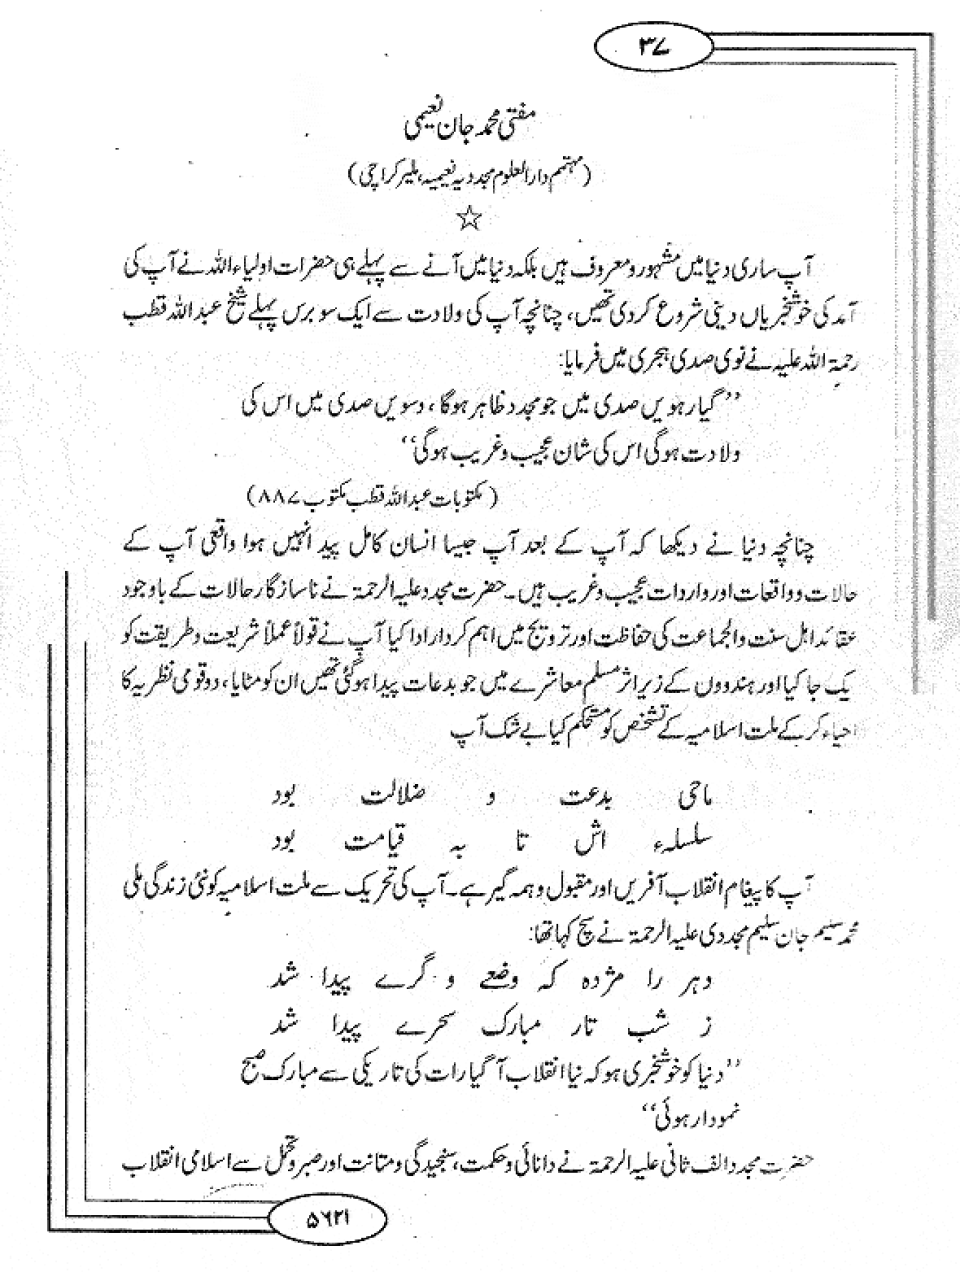 ۳۷
مفتی محمد جان نعیمی
(مہتمم دار العلوم مجددیہ نعیمیہ، ملیر کراچی)
☆
آپ ساری دنیا میں مشہور و معروف ہیں بلکہ دنیا میں آنے سے پہلے ہی حضرات اولیاء اللہ نے آپ کی
آمد کی خوشخبریاں دینی شروع کردی تھیں، چنانچہ آپ کی ولادت سے ایک سو برس پہلے شیخ عبداللہ قطب
رحمۃ اللہ علیہ نے نوی صدی ہجری میں فرمایا:
”گیارہویں صدی میں جو مجدد ظاہر ہوگا، دسویں صدی میں اس کی
ولادت ہوگی اس کی شان عجیب و غریب ہوگی“
(مکتوبات عبداللہ قطب مکتوب ۸۸۷)
چنانچہ دنیا نے دیکھا کہ آپ کے بعد آپ جیسا انسان کامل پیدا نہیں ہوا واقعی آپ کے
حالات و واقعات اور واردات عجیب و غریب ہیں۔ حضرت مجدد علیہ الرحمۃ نے ناسازگار حالات کے باوجود
عقائد اہل سنت والجماعت کی حفاظت اور ترویج میں اہم کردار ادا کیا آپ نے قولاً عملاً شریعت و طریقت کو
یک جا کیا اور ہندووں کے زیر اثر مسلم معاشرے میں جو بدعات پیدا ہوگئی تھیں ان کو مٹایا، دو قومی نظریہ کا
احیاء کر کے ملت اسلامیہ کے تشخص کو مستحکم کیا بے شک آپ
ماحی بدعت و ضلالت بود
سلسلہء اش تا بہ قیامت بود
آپ کا پیغام انقلاب آفریں اور مقبول و ہمہ گیر ہے۔ آپ کی تحریک سے ملت اسلامیہ کو نئی زندگی ملی
محمد سلیم جان سلیم مجددی علیہ الرحمۃ نے سچ کہا تھا:
دہر را مژدہ کہ وضعے و گرے پیدا شد
ز شب تار مبارک سحرے پیدا شد
”دنیا کو خوشخبری ہو کہ نیا انقلاب آگیا رات کی تاریکی سے مبارک صبح
نمودار ہوئی“
حضرت مجدد الف ثانی علیہ الرحمۃ نے دانائی و حکمت، سنجیدگی و متانت اور صبر و تحمل سے اسلامی انقلاب
۵۶۲۱